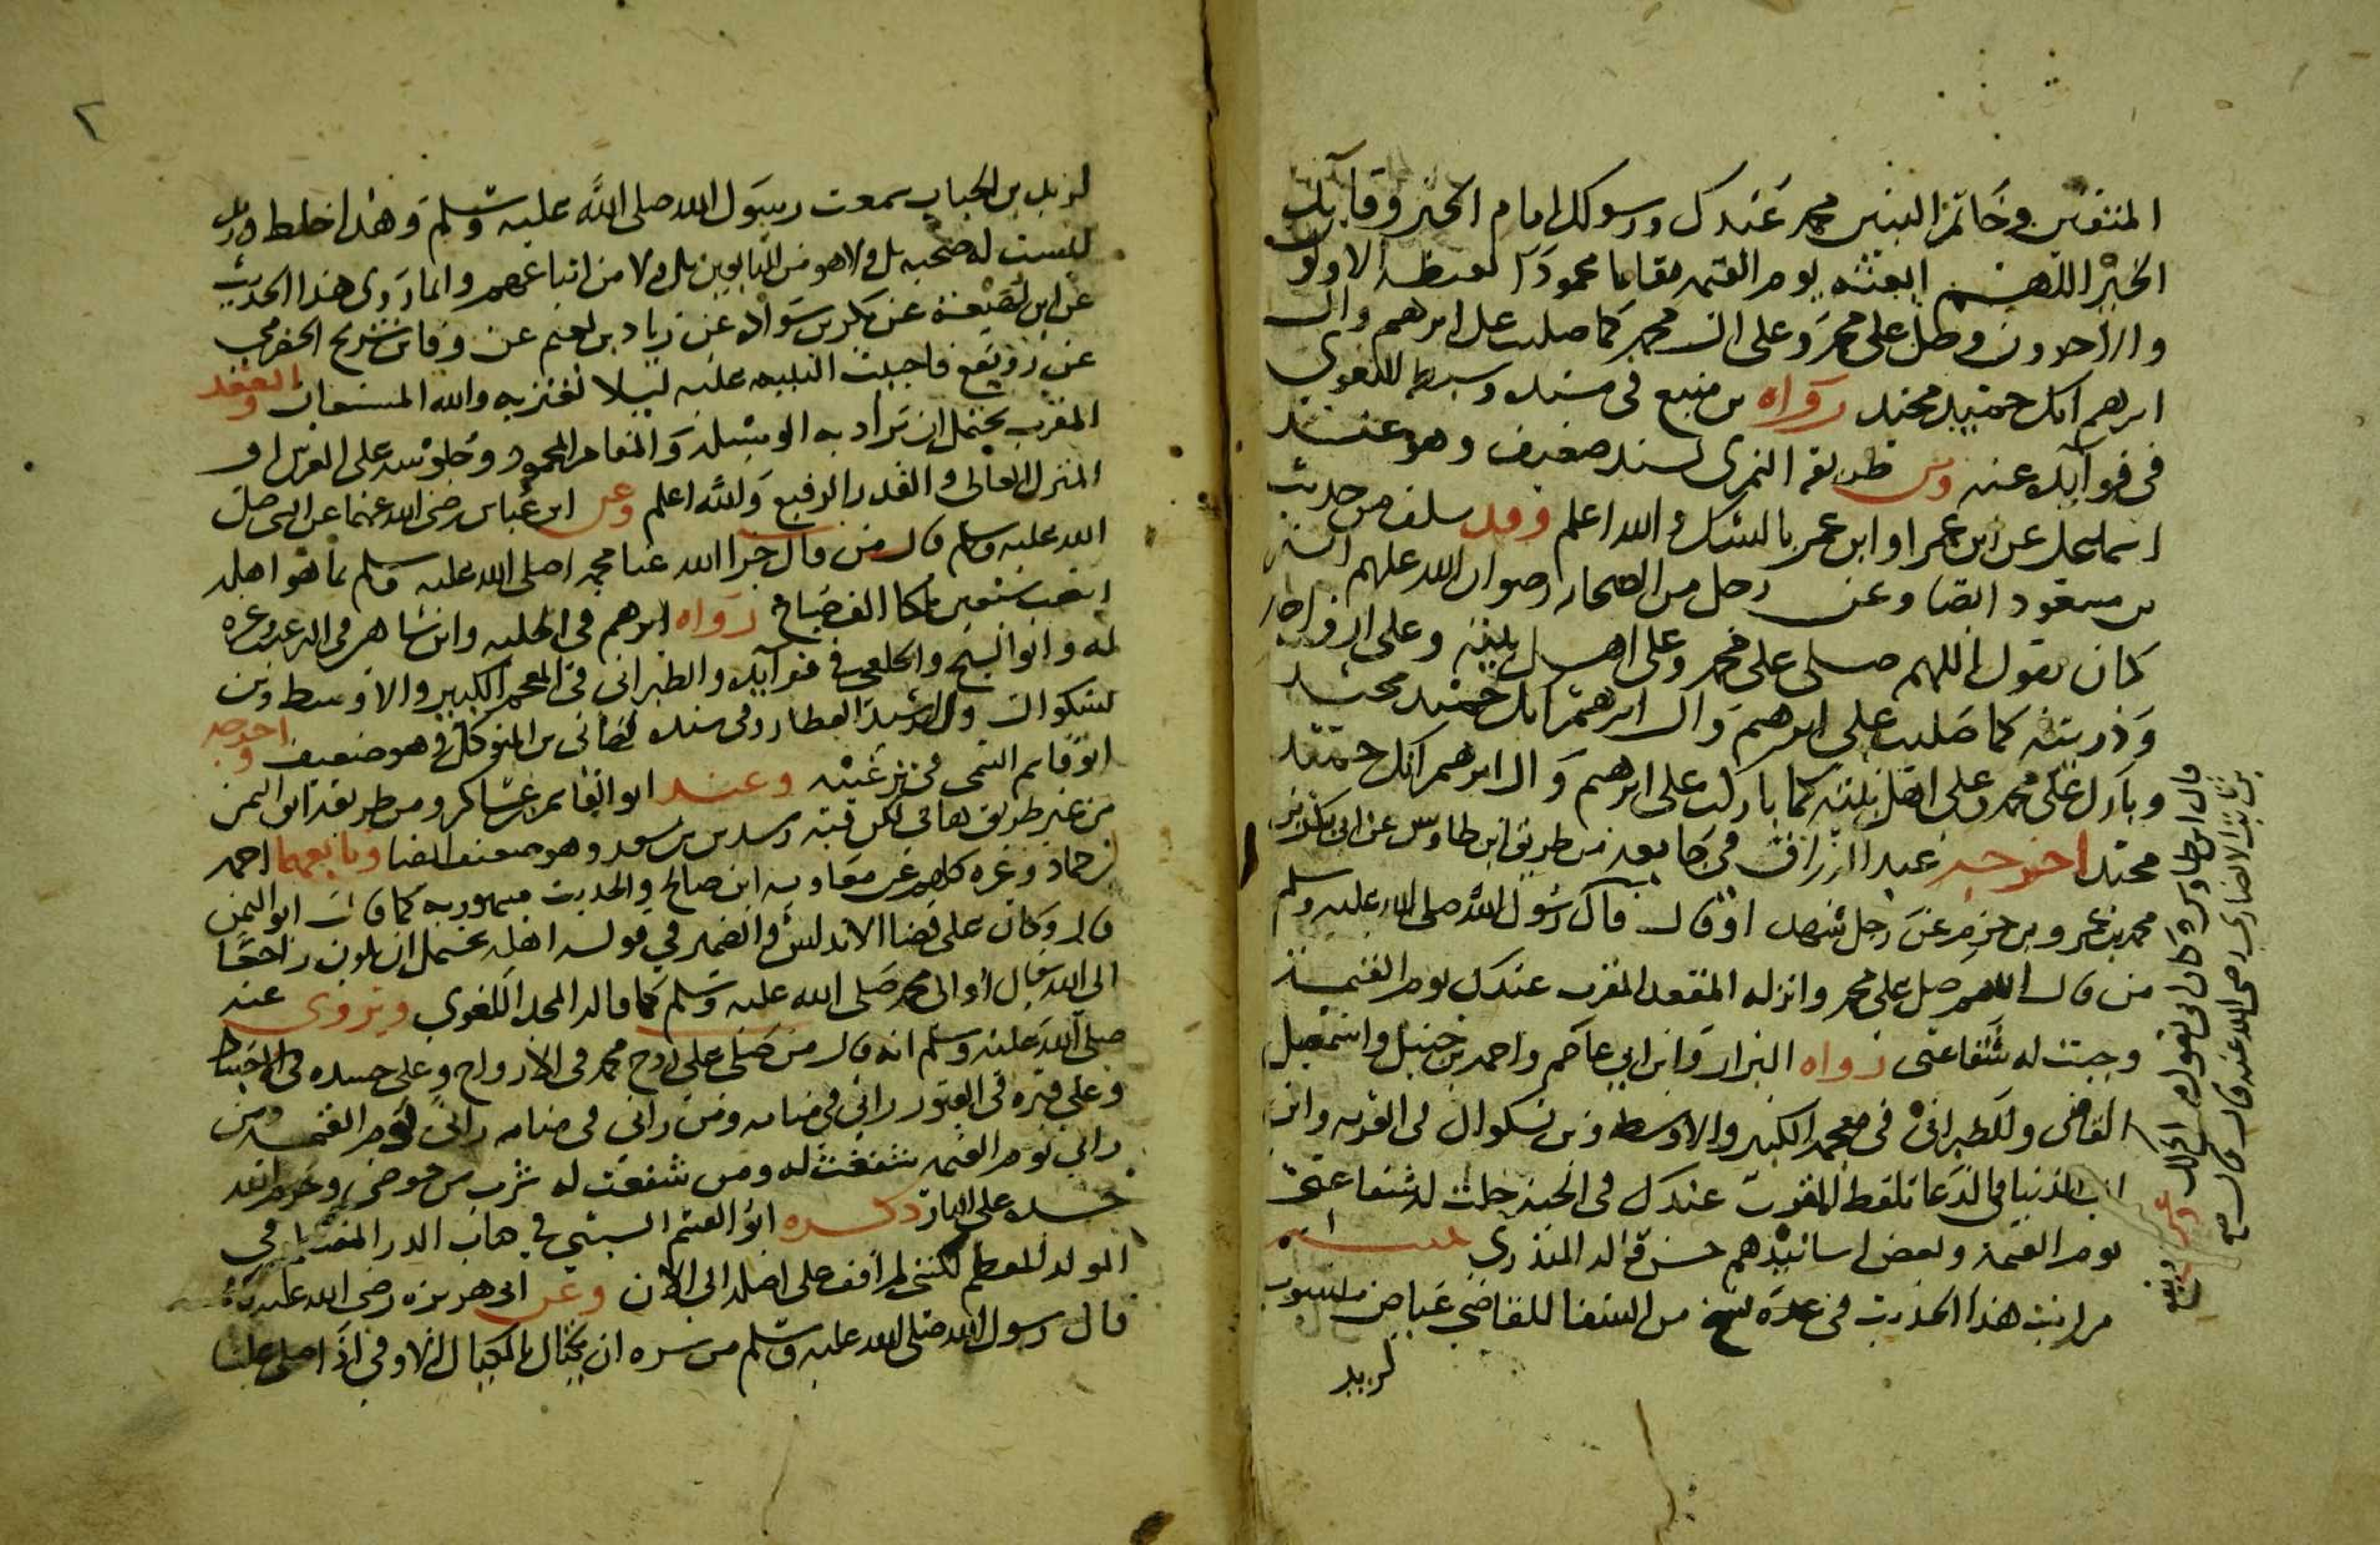 المتقين وخاتم النبيين محمد عبدك ورسولك امام الخير وقايد
الخير اللهم ابعثه يوم القيمة مقاما محمودا يغبطه الاولون
والاخرون وصل على محمد وعلى ال محمد كما صليت على ابرهيم وال
ابرهيم انك حميد مجيد رواه بن منيع في مسنده وسبطه البغوي
في فوايده عنه ومن طريقه النميري بسند ضعيف وهو عند
اسماعيل عن ابن عمر او ابن عمرو بالشك والله اعلم وقد سلف من حديث
بن مسعود ايضا وعن رجل من الصحابة رضوان الله عليهم
كان يقول اللهم صلى على محمد وعلى اهل بيته وعلى ازواجه
وذريته كما صليت على ابرهيم وال ابرهيم انك حميد مجيد
وبارك على محمد وعلى اهل بيته كما باركت على ابرهيم وال ابرهيم انك حميد
مجيد اخرجه عبد الرزاق في جامعه من طريق ابن طاوس عن ابي بكر بن
محمد بن عمرو بن حزم عن رجل قال رسول الله صلى الله عليه وسلم
من قال اللهم صل على محمد وانزله المقعد المقرب عندك يوم القيمة
وجبت له شفاعتي رواه البزار وابن ابي عاصم واحمد بن حنبل واسمعيل
القاضي والطبراني في معجمه الكبير والاوسط وبن بشكوال في القربة وابن
ابي الدنيا في الدعا بلفظ المقرب عندك في الجنة حلت له شفاعتي
يوم القيمة وبعض اسانيدهم حسن قاله المنذري تنبيه
رايت هذا الحديث في عدة نسخ من الشفا للقاضي عياض منسوب
لزيد
قال ابن طاوس وكان ابي يقول مثل ذلك وعن رويفع
بن ثابت الانصاري رضي الله عنه قال قال رسول
لزيد بن الحباب سمعت رسول الله صلى الله عليه وسلم وهذا غلط وزيد
ليست له صحبه بل ولا هو من التابعين بل ولا من اتباعهم وانما روى هذا الحديث
عن ابن لهيعة عن بكر بن سوادة عن زياد بن نعيم عن وفا بن شريح الحضرمي
عن رويفع فاحببت التنبيه عليه ليلا يغتر به والله المستعان والمقعد
المقرب يحتمل ان يراد به الوسيلة والمقام المحمود وجلوسه على العرش او
المنزل العالي والقدر الرفيع والله اعلم وعن ابن عباس رضي الله عنهما عن النبي صلى
الله عليه وسلم قال من قال جزا الله عنا محمدا صلى الله عليه وسلم بما هو اهله
اتعب سبعين ملكا الف صباح رواه ابو نعيم في الحلية وابن شاهين في الترغيب وغيره
له وابو الشيخ والخلعي في فوايده والطبراني في المعجم الكبير والاوسط وبن
بشكوال والرشيد العطار وفي سنده هاني بن المتوكل وهو ضعيف واخرجه
ابو قاسم التيمي في ترغيبه وعند ابو القاسم بن عساكر ومن طريقه ابو اليمن
من غير طريق هاني لكن فيه رشدين بن سعد وهو ضعيف ايضا وتابعهما احمد
بن حماد وغيره كلهم عن معاوية ابن صالح والحديث مشهور به كما قال ابو اليمن
قال وكان على قضا الاندلس والضمير في قوله اهله يحتمل ان يكون راجعا
الى الله تعالى او الى محمد صلى الله عليه وسلم كما قاله المجد اللغوي ويروى عنه
صلى الله عليه وسلم انه قال من صلى على روح محمد في الارواح وعلى جسده في الاجساد
وعلى قبره في القبور راني في منامه ومن راني في منامه راني يوم القيمة ومن
راني يوم القيمة شفعت له ومن شفعت له شرب من حوضي وحرم الله
جسده على النار ذكره ابو القسم السبتي في الدر المنظم في
المولد المعظم لكني لم اقف على اصله الى الان وعن ابي هريرة رضي الله عنه
قال رسول الله صلى الله عليه وسلم من سره ان يكتال بالمكيال الاوفى اذا صلى علينا